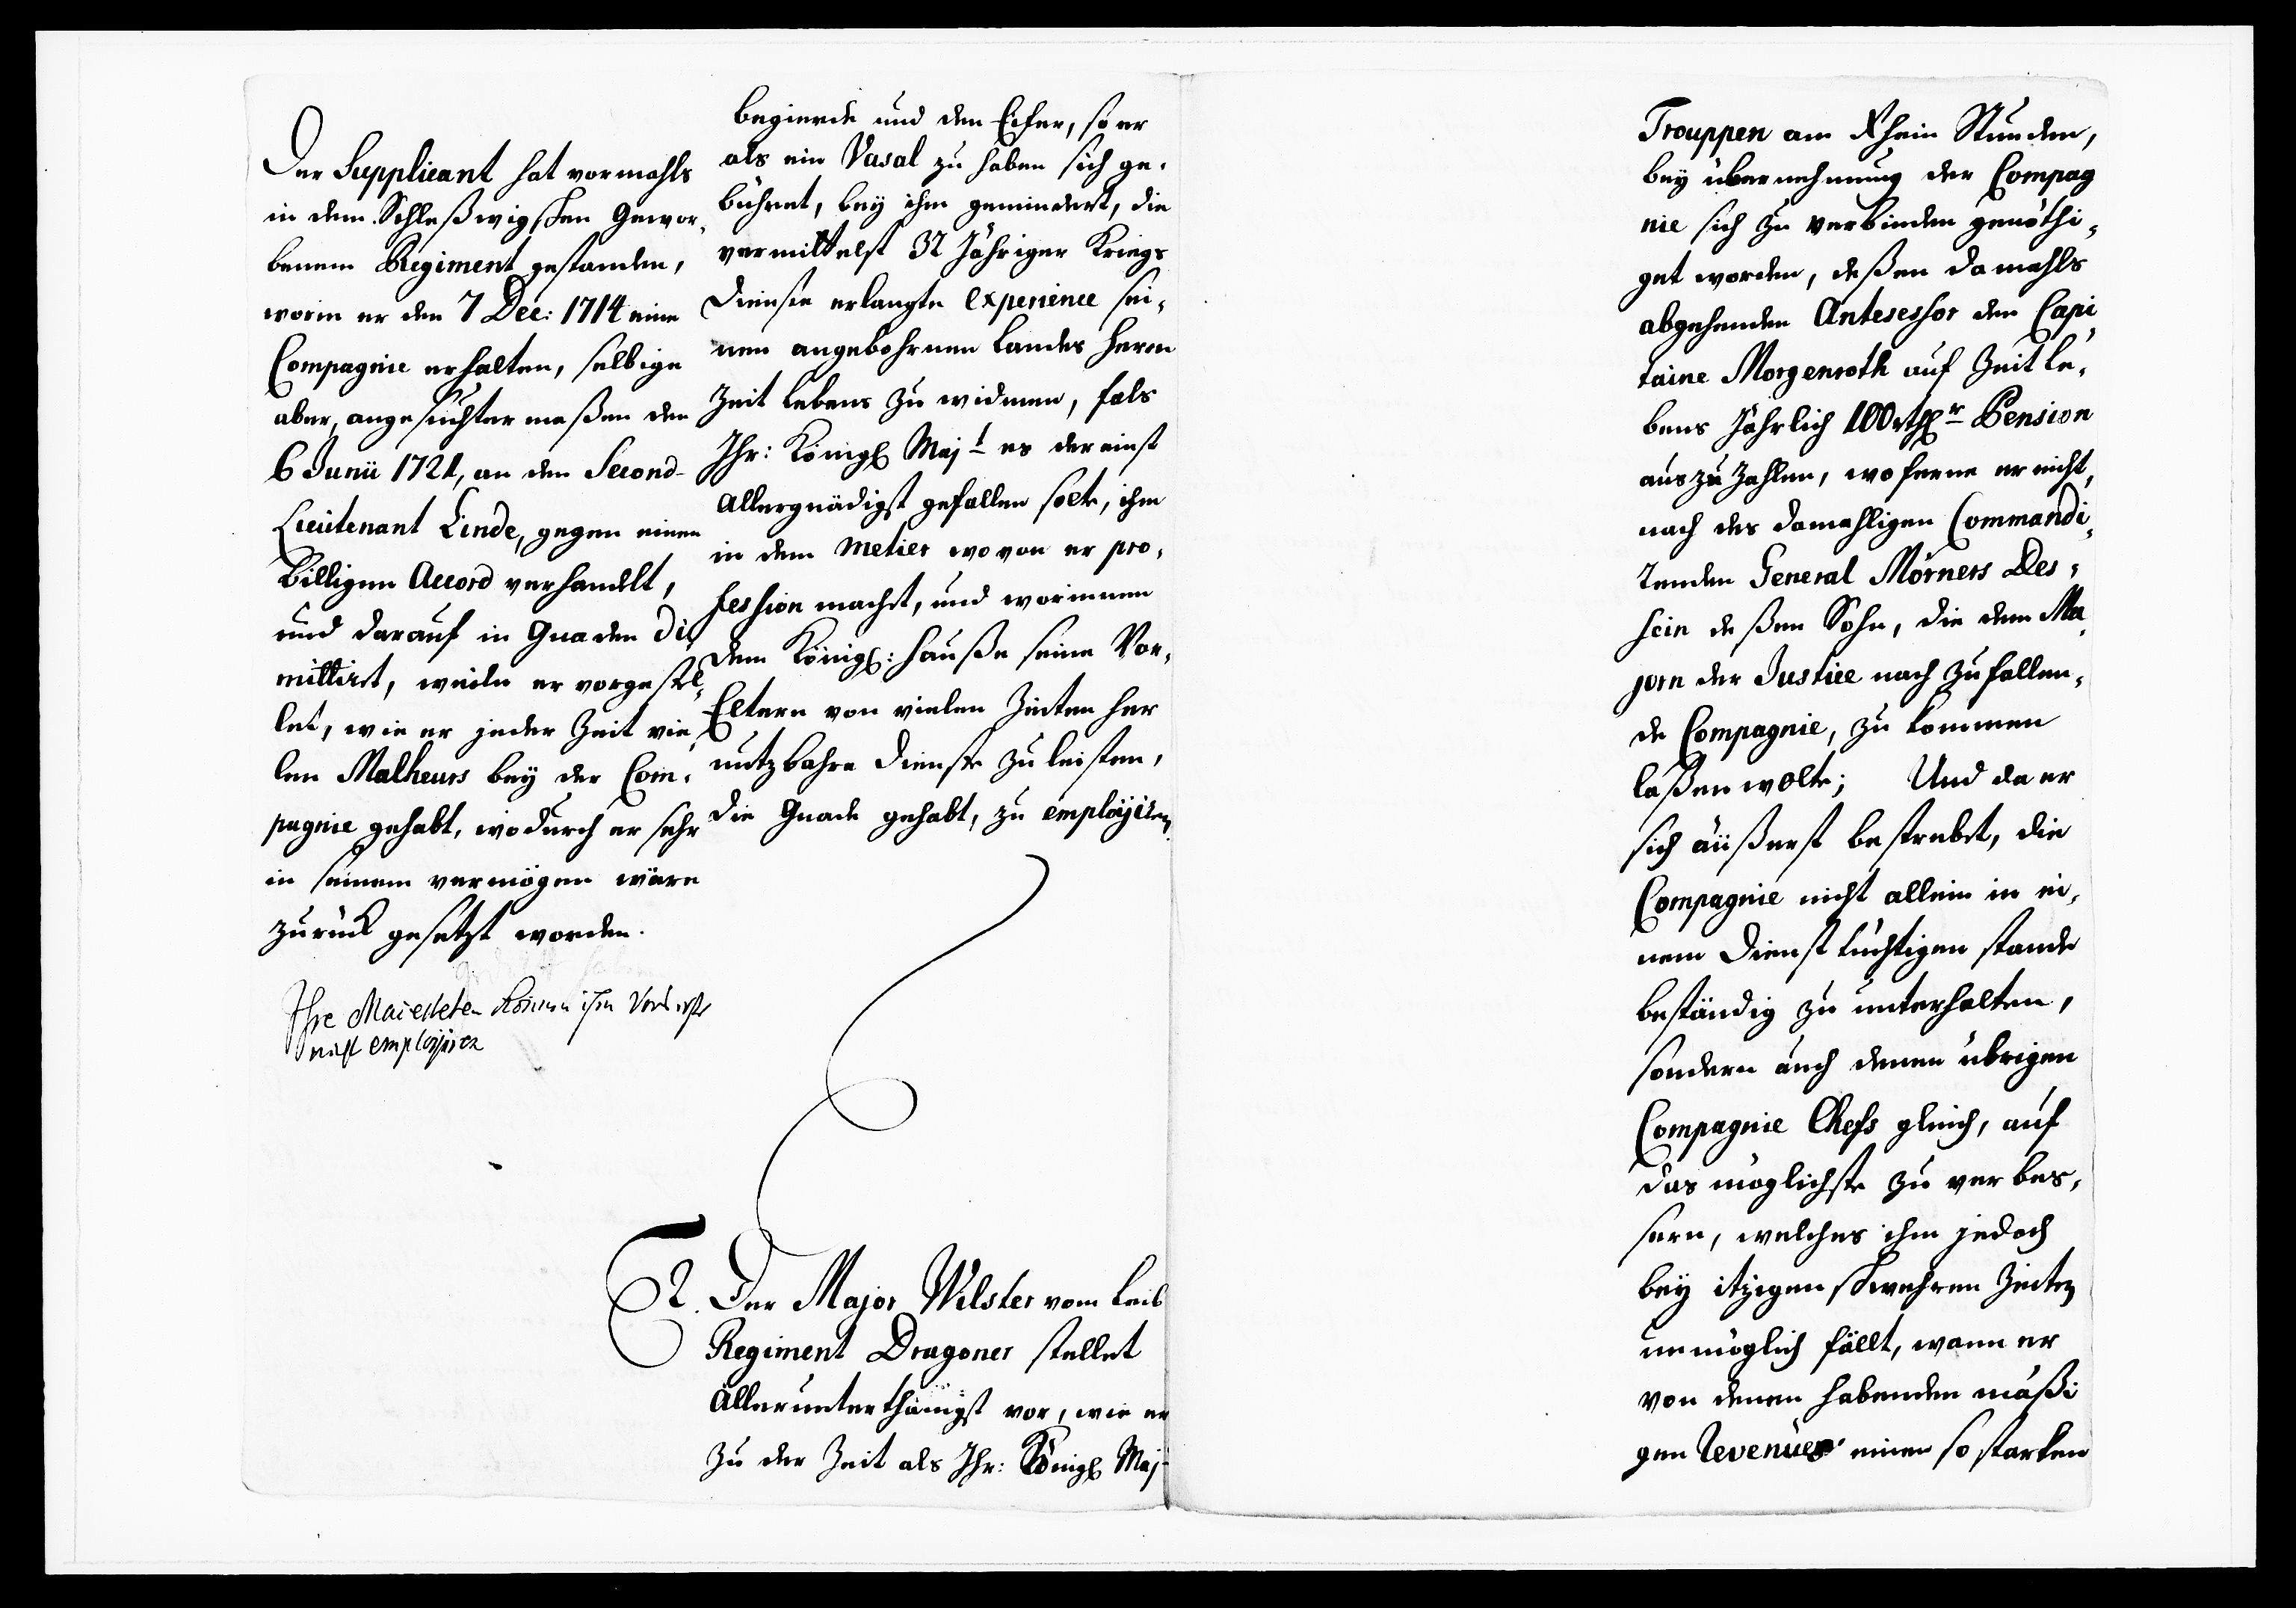 Der Supplicant hat vormahls
in dem Schleßwigschen Gewor-
benem Regiment gestanden,
worin er den 7 Dec: 1714 eine
Compagnie erhalten, selbige
aber, angesuchter maßen den
6 Junii 1721, an den Second-
Lieutenant Linde, gegen einen
billigen Accord verhandelt,
und darauf in Gnaden di-
mittirt, weile er vorgestel-
let, wie er jeder Zeit vie-
len Malheurs bey der Com-
pagnie gehabt, wodurch er sehr
in seinem vermögen wäre
zurück gesetzt worden.
Ihre Maiesteten können ihm Vors erste
nicht employiren
begierde und den Eifer, so er
als ein Vasal zu haben sich ge-
bühret, bey ihm gemindert, die
vermittelst 32 Jähriger Kriegs
Dienste erlangte experience sei-
nen angebohrnen Landes Herrn
Zeit Lebens zu widmen, fals
Ihr: Königl Majt es dereinst
Allergnädigst gefallen solte, ihm
in dem metier wovon er pro-
fession macht, und worinnen
dem Königl: Hauße seine Vor-
Eltern von vielen Zeiten her
nutzbahre Dienste zu leisten,
die Gnade gehabt, zu employiren
2. Der Major Wilster vom Leib
Regiment Dragoner stellet
Allerunterthänigst vor, wie er
zu der Zeit als Ihr: Königl Maj
Trouppen am Rhein Stunden,
bey übernehmung der Compag
nie sich zu verbinden genöthi-
get worden, deßen damahls
abgehenden Antesessor den Capi
taine Morgenroth auf Zeit Le-
bens Jährlich 100 rthlr Pension
auszuzahlen, woferne er nicht,
nach des damahligen Commandi-
renden General Mörners Des-
sein deßen Sohn, die dem Ma
jorn der Justice nach zufallen-
de Compagnie, zu kommen
laßen wolte; Und da er
sich äüßerst bestrebet, die
Compagnie nicht allein in ei-
nem Dienst tüchtigen stande
beständig zu unterhalten,
sondern auch denen übrigen
Compagnie Chefs gleich, auf
das möglichste zu verbes-
sern, welches ihm jedoch
bey itzigen schwehren Zeiten
unmöglich fällt, wann er
von denen habenden mäßi
gen Revenües einen so starken